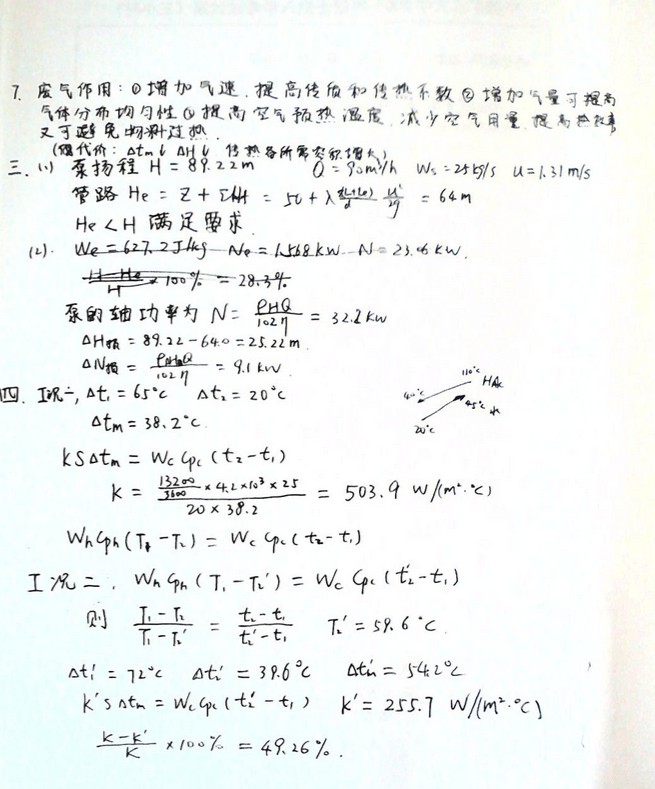 7. 废气作用：① 增加气速，提高传质和传热系数 ② 增加气量可提高
气体分布均匀性 ③ 提高空气预热温度，减少空气用量，提高热效率
又可避免物料过热.
(但代价：Δtm↓ ΔH↓ 传热器所需容积增大)
三、(1) 泵扬程 H = 89.22m Q = 90m³/h Ws = 25kg/s u = 1.31 m/s
管路 He = Z + ΣHf = 50 + λ (L+Le)/d u²/2g = 64m
He < H 满足要求.
(2). We = 627.2J/kg Ne = 15.68kW N = 23.06 KW.
(H-He)/H × 100% = 28.3%
泵的轴功率为 N = ρHQ/102η = 32.2 kw
ΔH损 = 89.22-64.0 = 25.22m.
ΔN损 = ρH损Q/102η = 9.1 kw.
四. 工况一, Δt₁ = 65℃ Δt₂ = 20℃
110℃ HAc
40℃ 45℃ 水
20℃
Δtm = 38.2℃.
KSΔtm = Wc Cpc (t₂-t₁)
K = (13200/3600 × 4.2×10³ × 25)/(20 × 38.2) = 503.9 W/(m²·℃)
Wh Cph (T₁-T₂) = Wc Cpc (t₂-t₁)
工况二. Wh Cph (T₁-T₂') = Wc Cpc (t₂'-t₁)
则 (T₁-T₂)/(T₁-T₂') = (t₂-t₁)/(t₂'-t₁) T₂' = 59.6℃.
Δt₁' = 72℃ Δt₂' = 39.6℃ Δtm' = 54.2℃
K'SΔtm = Wc Cpc (t₂'-t₁) K' = 255.7 W/(m²·℃)
(K-K')/K × 100% = 49.26%.